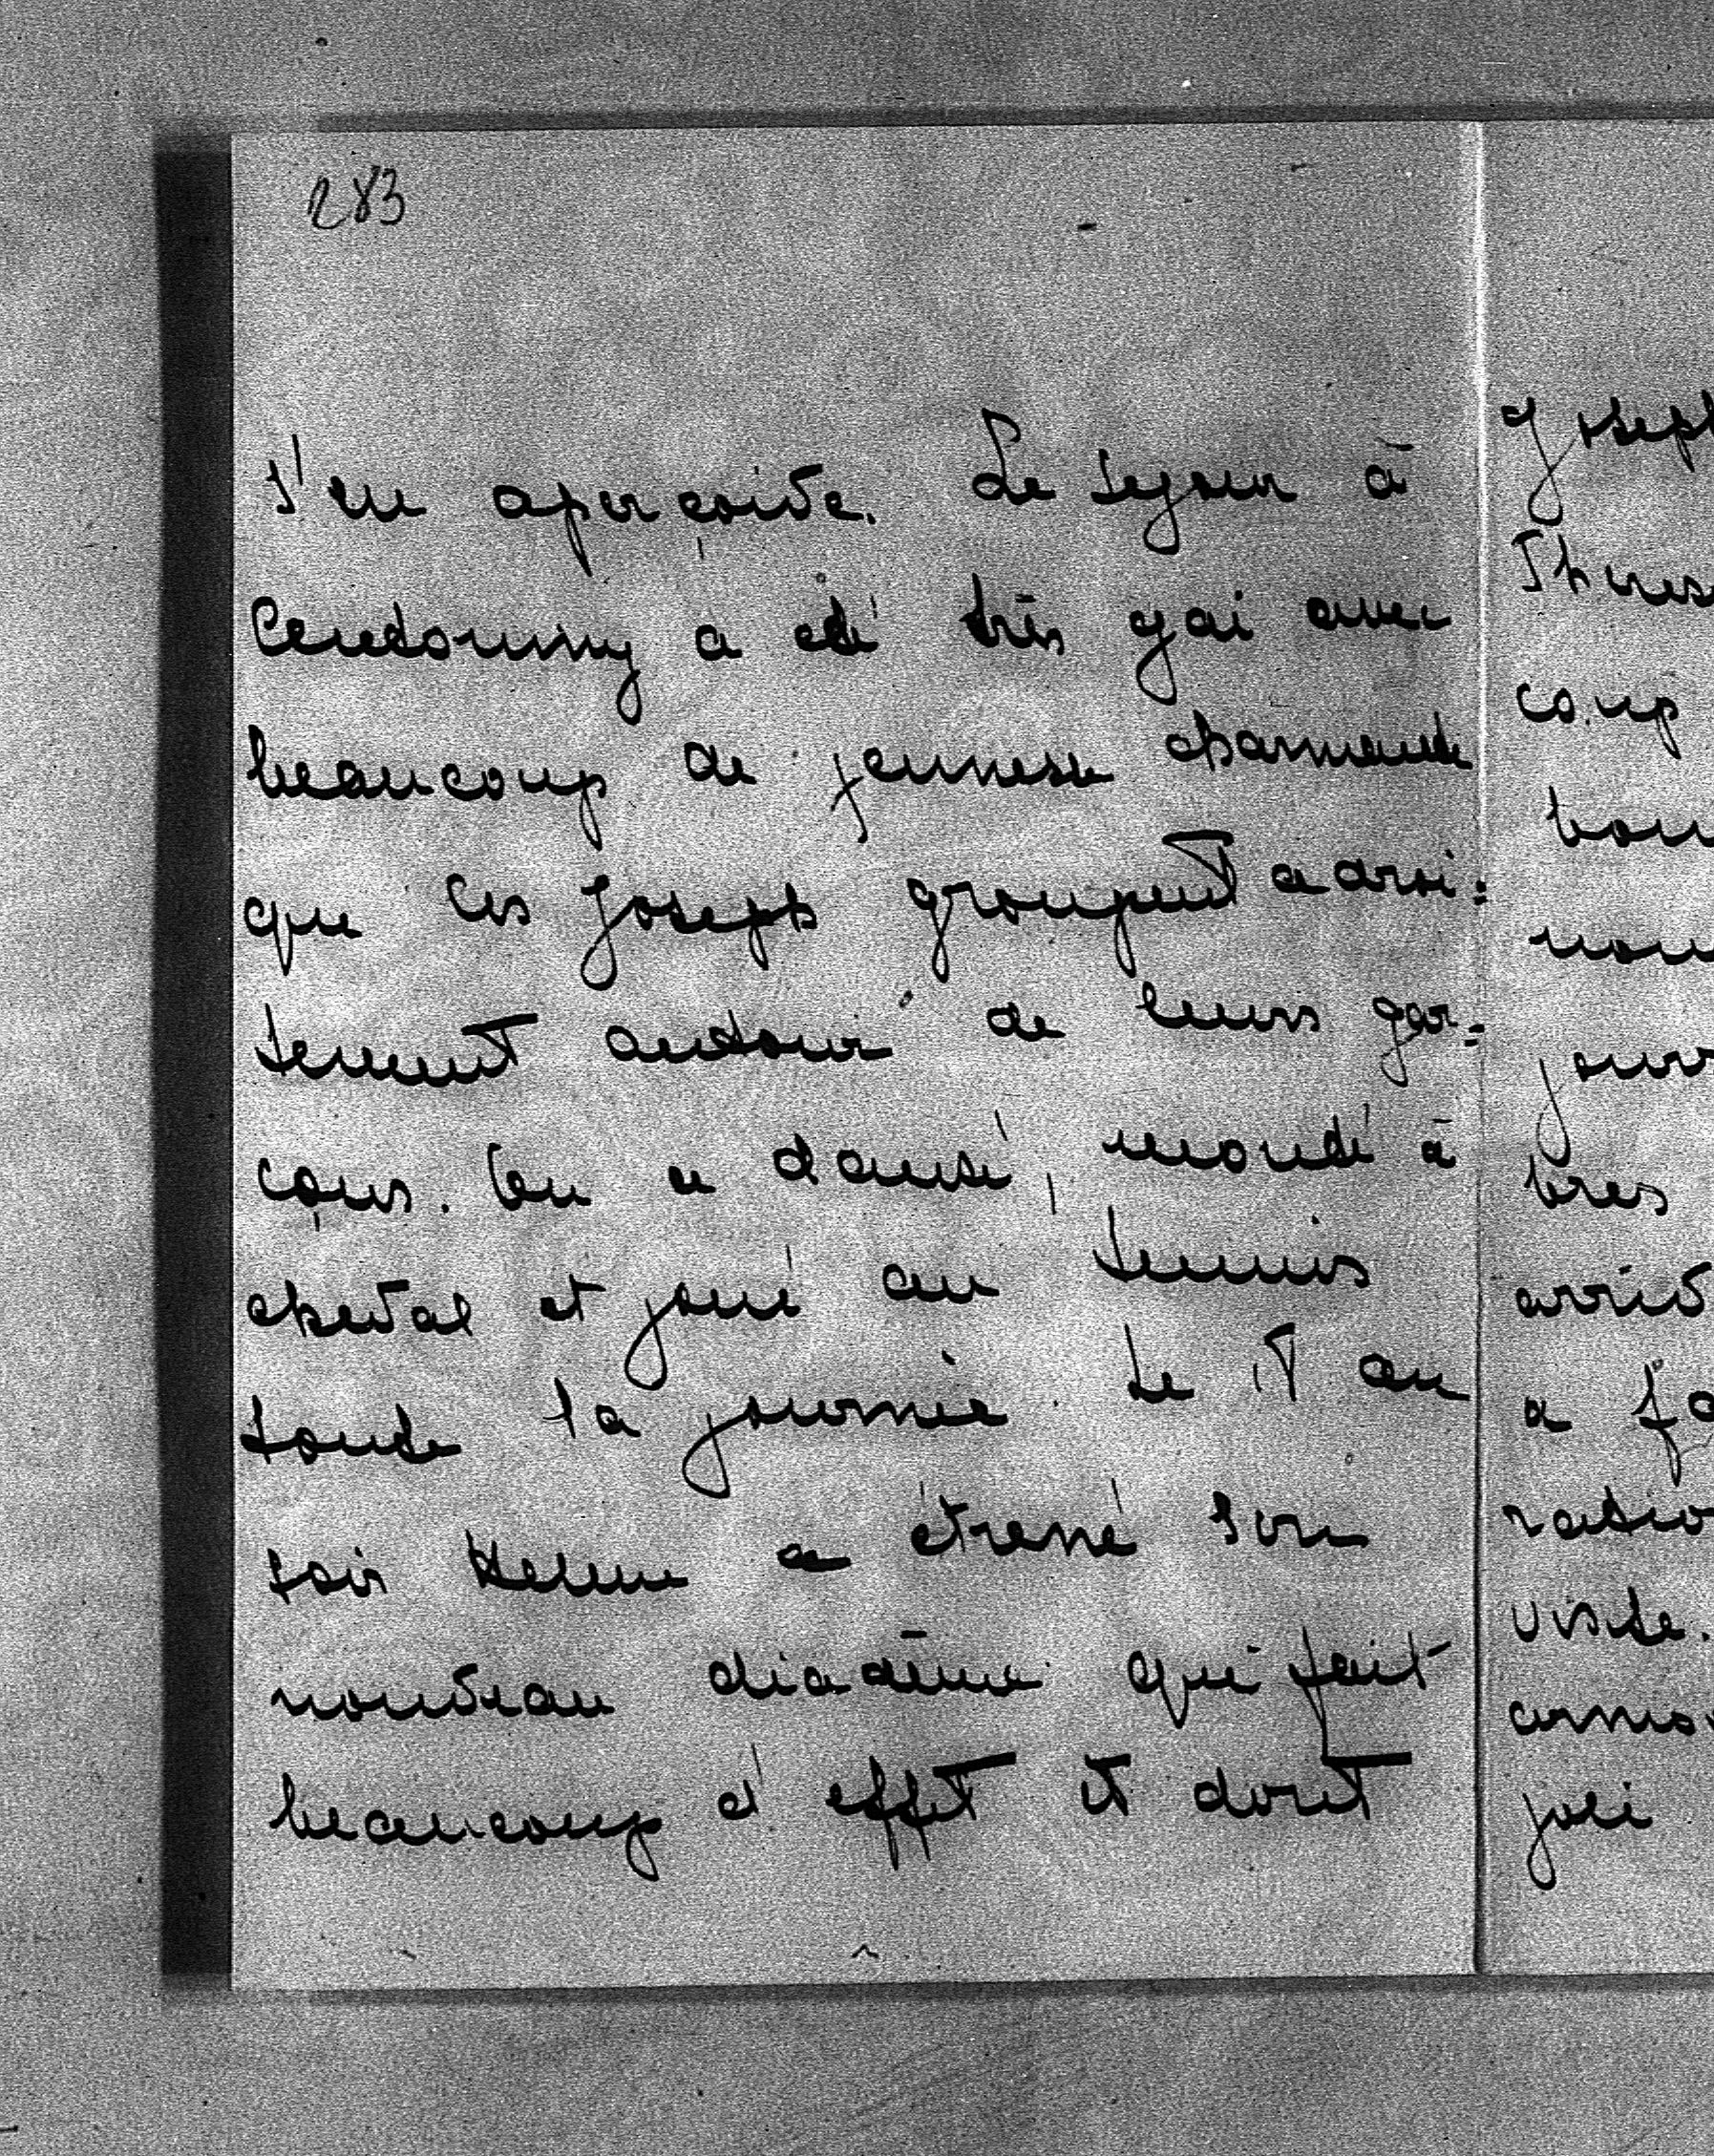 283
s'en aperçoive. Le sejour à
a été très gai avec
beaucoup de jeunesse charmante
que les Joseph groupent adroi:
tement autour de leurs gar:
çons. On a dansé, monté à
cheval et joué au tennis
toute la journée. Le 17 au
soir Helene a étrené son
nouveau diadème qui fait
beaucoup d'effet et dont
Joseph
coup
arriv
a fa
ratio
visite.
joli